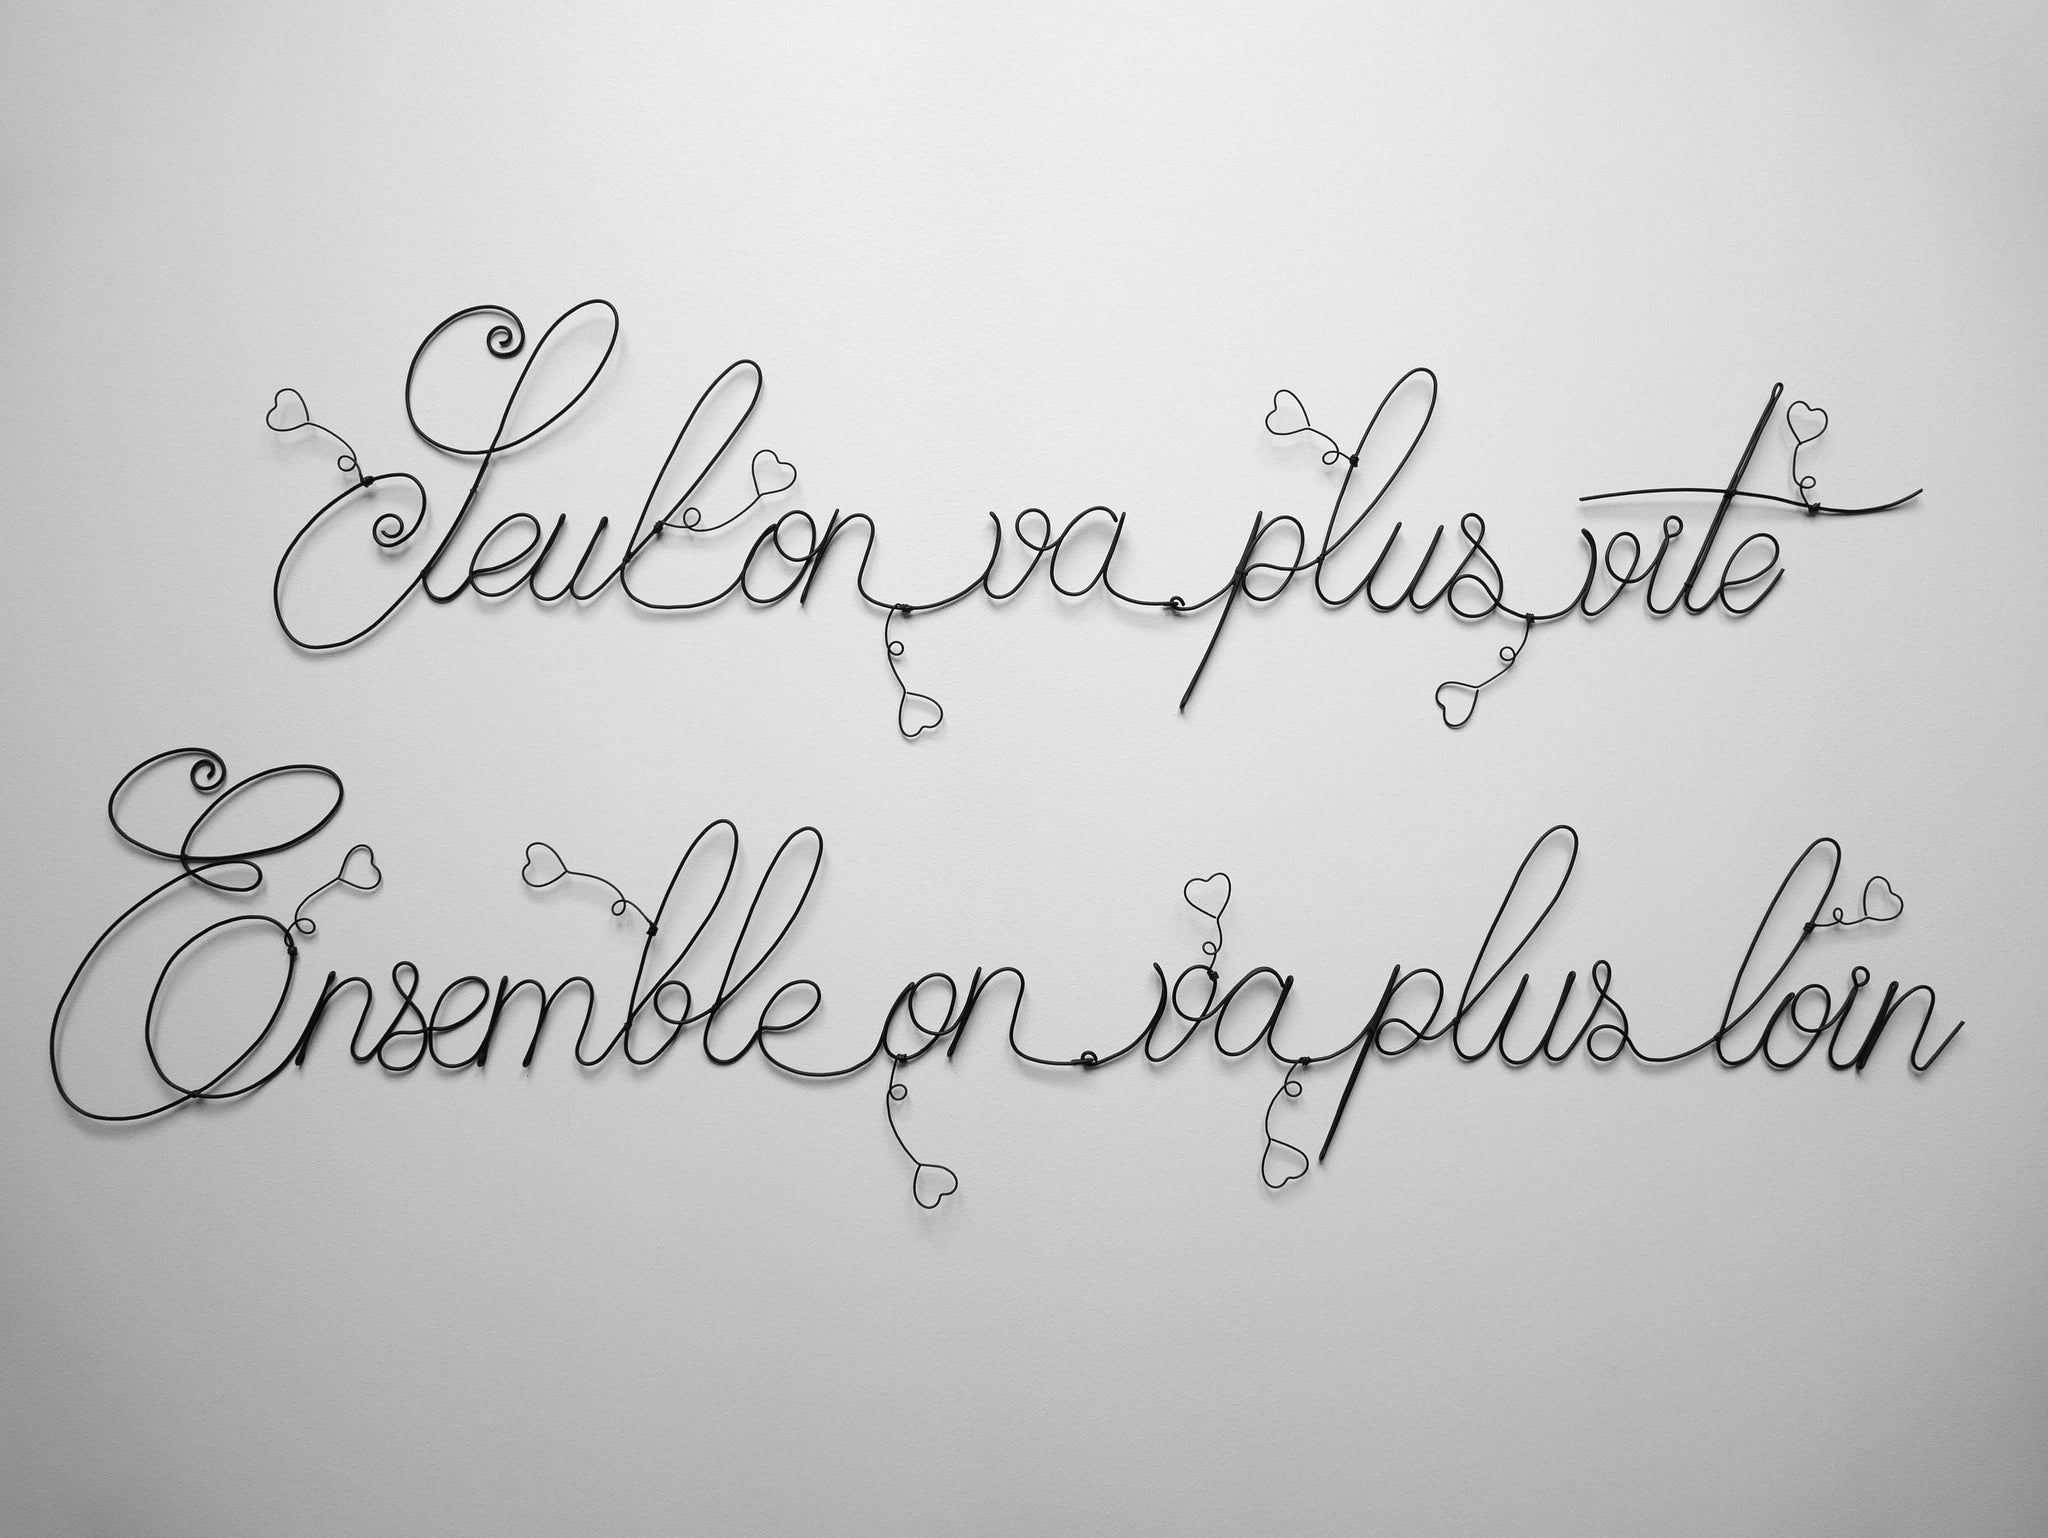 Seul on va plus vite
Ensemble on va plus loin